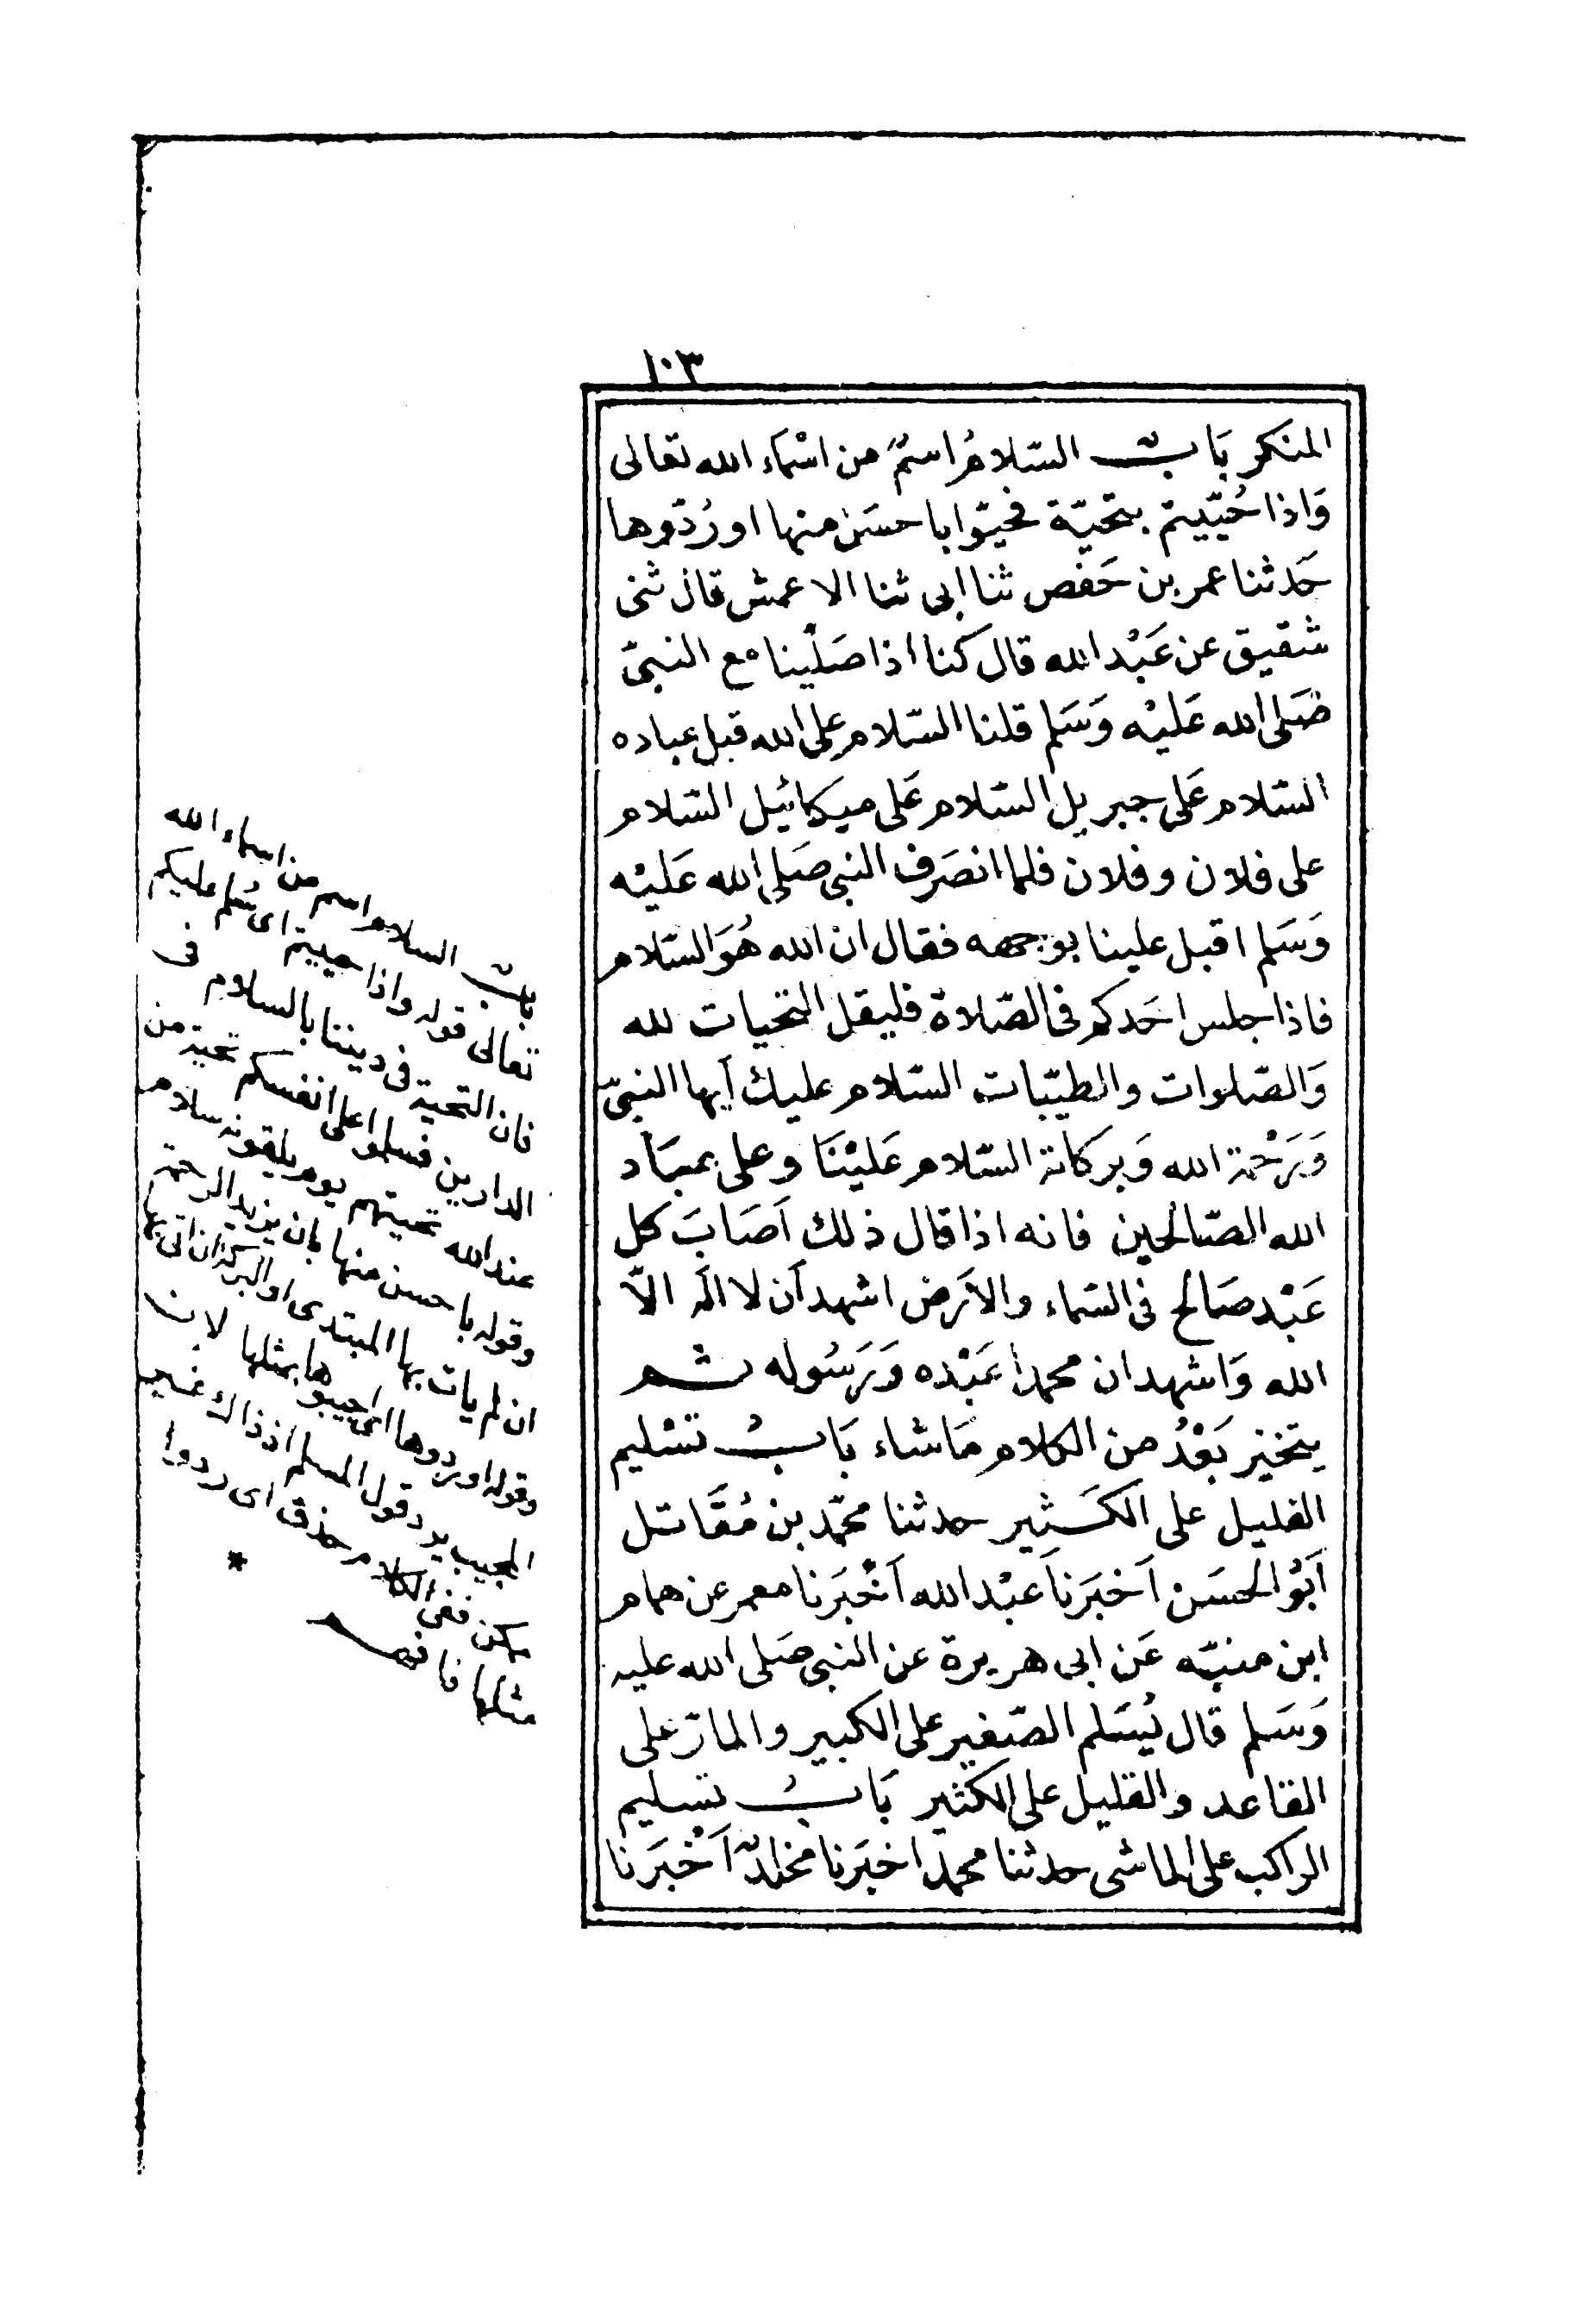 ١٠٣
المنكر بَابٌ السّلامُ اسمٌ من اسْمَاء الله تعَالى
وَاذا حُيّيتم بتحيّة فحيّوا باحسَن منها اورُدّوها
حَدثنا عمر بن حَفص ثنا ابى ثنا الاعمش قال ثنى
شقيق عن عَبْد الله قال كنا اذا صَلّينا مع النبىّ
صَلى الله عَليْه وَسَلم قلنا السّلام على الله قبل عباده
السّلام عَلى جبريل السّلام عَلى ميكائيل السّلام
على فلان وفلان فلما انصَرف النبى صَلى الله عَليْه
وَسَلم اقبل علينا بوجهه فقال ان الله هُوَ السّلام
فاذا جلس احَدكم فى الصّلاة فليقل التحيات لله
وَالصّلوات والطيّبات السّلام عليك اَيها النبىّ
وَرَحْمة الله وَبركاته السّلام عَليْنَا وعلى عبَاد
الله الصّالحين فانه اذا قال ذلك اَصَابَ كل
عَبْد صَالح فى السّماء والاَرض اشهد اَن لا الٓه الاّ
الله وَاشهد ان محمدا عَبْده وَرَسُوله ثم
يتخير بَعْدُ من الكلام مَاشاء بَابُ تسْليم
القليل على الكَثِير حدثنا محمّد بن مُقَاتل
اَبُو الحسَن اَخبَرنا عبْد الله اَخْبَرنا معمر عن همام
ابن منبّه عَن ابى هريرة عن النبى صَلى الله عليه
وَسَلم قال يُسَلم الصّغير على الكبير والمارّ على
القاعد والقليل على الكثير بَابُ تسْليم
الراكب على الماشى حدثنا محمد اخبَرنا مخلدٌ اَخْبَرنا
باب السلام اسم من اسماء الله
تعالى قوله واذا حييتم اى سُلم عليكم
فان التحية فى ديننا بالسلام فى
الدارين فسلموا على انفسكم تحية من
عند الله تحيتهم يوم يلقونه سلام
وقوله باحسن منها بان يزيد الرحمة
ان لم يات بها المبتدى او البركة ان اتى بها
وقوله اوردوها اى اجيبوها بمثلها لان
المجيب يرد قول المسلم اذ ذاك غير
ممكن ففى الكلام حذف اى ردوا
مثلها فافهم *